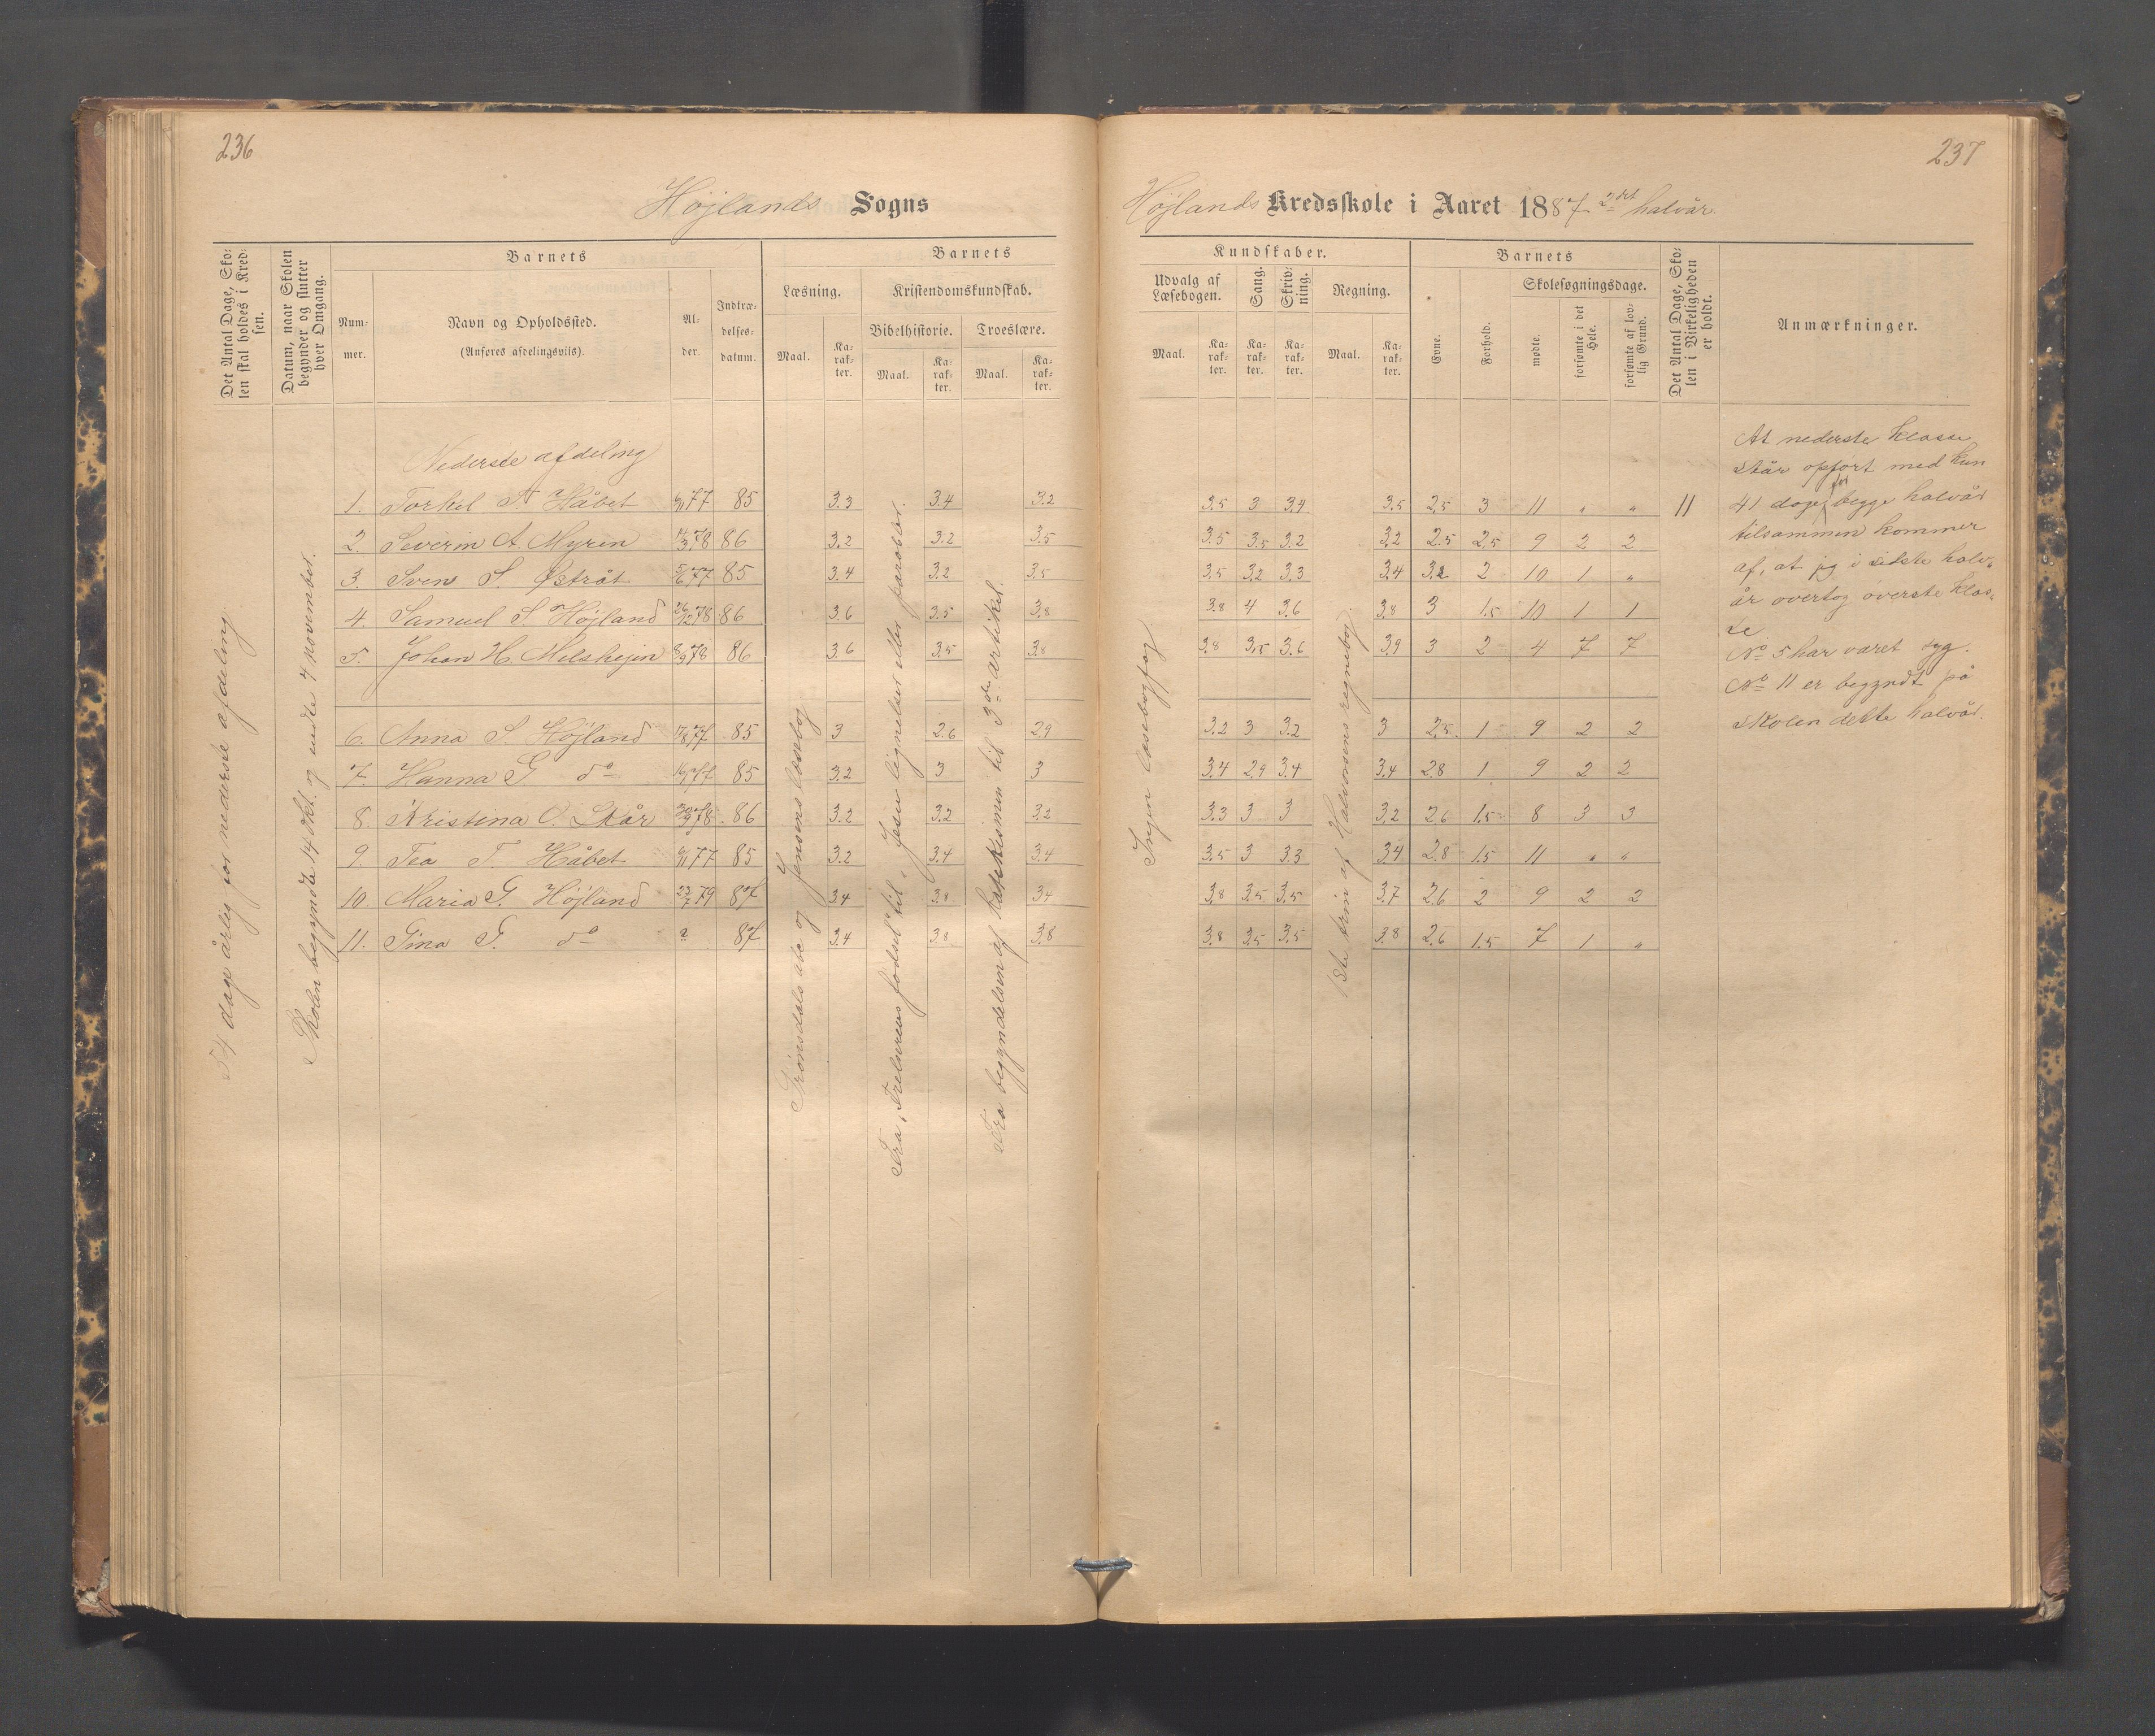 236
Højlands Sogns
Det Antal Dage, Sko-
len skal holdes i Kred-
sen.
Datum, naar Skolen
begynder og slutter
hver Omgang.
Barnets
Barnets
Num-
mer.
Navn og Opholdssted.
(Anføres afdelingsviis).
Al-
der.
Indtræ-
delses-
datum.
Læsning.
Kristendomskundskab.
Bibelhistorie. Troeslære.
Maal. Ka-
rak-
ter. Maal. Ka-
rak-
ter. Maal. Ka-
rak-
ter.
54 dage årlig for nederste afdeling.
Skolen begyndte 14 okt. og endte 4 november.
Nederste afdeling
1. Torkel T. Håbet 6/11 77 85 3.3 3.4 3.2
2. Severin A. Myren 14/3 78 86 3.2 3.2 3.5
3. Sven S. Østråt 5/6 77 85 3.4 3.2 3.5
4. Samuel S. Højland 26/12 78 86 3.6 3.5 3.8
5. Johan H. Melshejin 8/9 78 86 3.6 3.5 3.8
6. Anna S. Højland 17/8 77 85 3 2.6 2.9
7. Hanna G. do 85 3.2 3 3
8. Kristina O. Skår 30/9 78 86 3.2 3.2 3.2
9. Tea T. Håbet 6/11 77 85 3.2 3.4 3.4
10. Maria G. Højland 23/7 79 87 3.4 3.8 3.4
11. Tina T. do ? 87 3.4 3.8 3.8
Tromsdals abc og Jensens læsebog
Fra "Frelserens fødsel" til "Jesu lignelser eller parabler.
Fra begyndelsen af katekismen til 3die artikel.
237
Højlands Kredsskole i Aaret 1887 2det halvår.
Kundskaber.
Barnets
Udvalg af
Læsebogen.
Sang.
Skriv-
ning.
Regning.
Maal. Ka-
rak-
ter. Ka-
rak-
ter. Ka-
rak-
ter. Maal. Ka-
rak-
ter.
Evne.
Forhold.
Skolesøgningsdage.
mødte.
forsømte i det
Hele.
forsømte af lov-
lig Grund.
Det Antal Dage, Sko-
len i Virkeligheden
er holdt.
Anmærkninger.
Ingen læsebogfag
1ste trin af Halvorsens regnebog.
3.5 3 3.4 3.5 2.5 3 11 " " 11
3.5 3.5 3.2 3.2 2.5 2.5 9 2 2
3.5 3.2 3.3 3.4 3.2 2 10 1 "
3.8 4 3.6 3.8 3 1.5 10 1 1
3.8 3.5 3.6 3.9 3 2 4 7 7
3.2 3 3.2 3 2.5 1 9 2 2
3.4 2.9 3.4 3.4 2.8 1 9 2 2
3.3 3 3 3.2 2.6 1.5 8 3 3
3.5 3 3.3 3.4 2.8 1.5 11 " "
3.8 3.5 3.5 3.7 2.6 2 9 2 2
3.8 3.5 3.5 3.8 2.6 1.5 7 1 "
At nederste klasse
står opført med kun
41 dage for begge halvår
tilsammen kommer
af, at jeg i sidste halv-
år overtog øverste klas-
se
No 5 har været syg.
No 11 er begyndt på
skolen dette halvår.